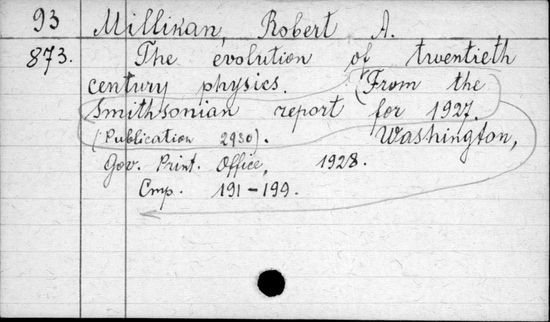 93 Millikan, Robert A.
873. The evolution of twentieth
century physics. (From the
Smithsonian report for 1927.
(Publication 2930). Washington,
Gov. Print. Office, 1928.
Стр. 191-199.